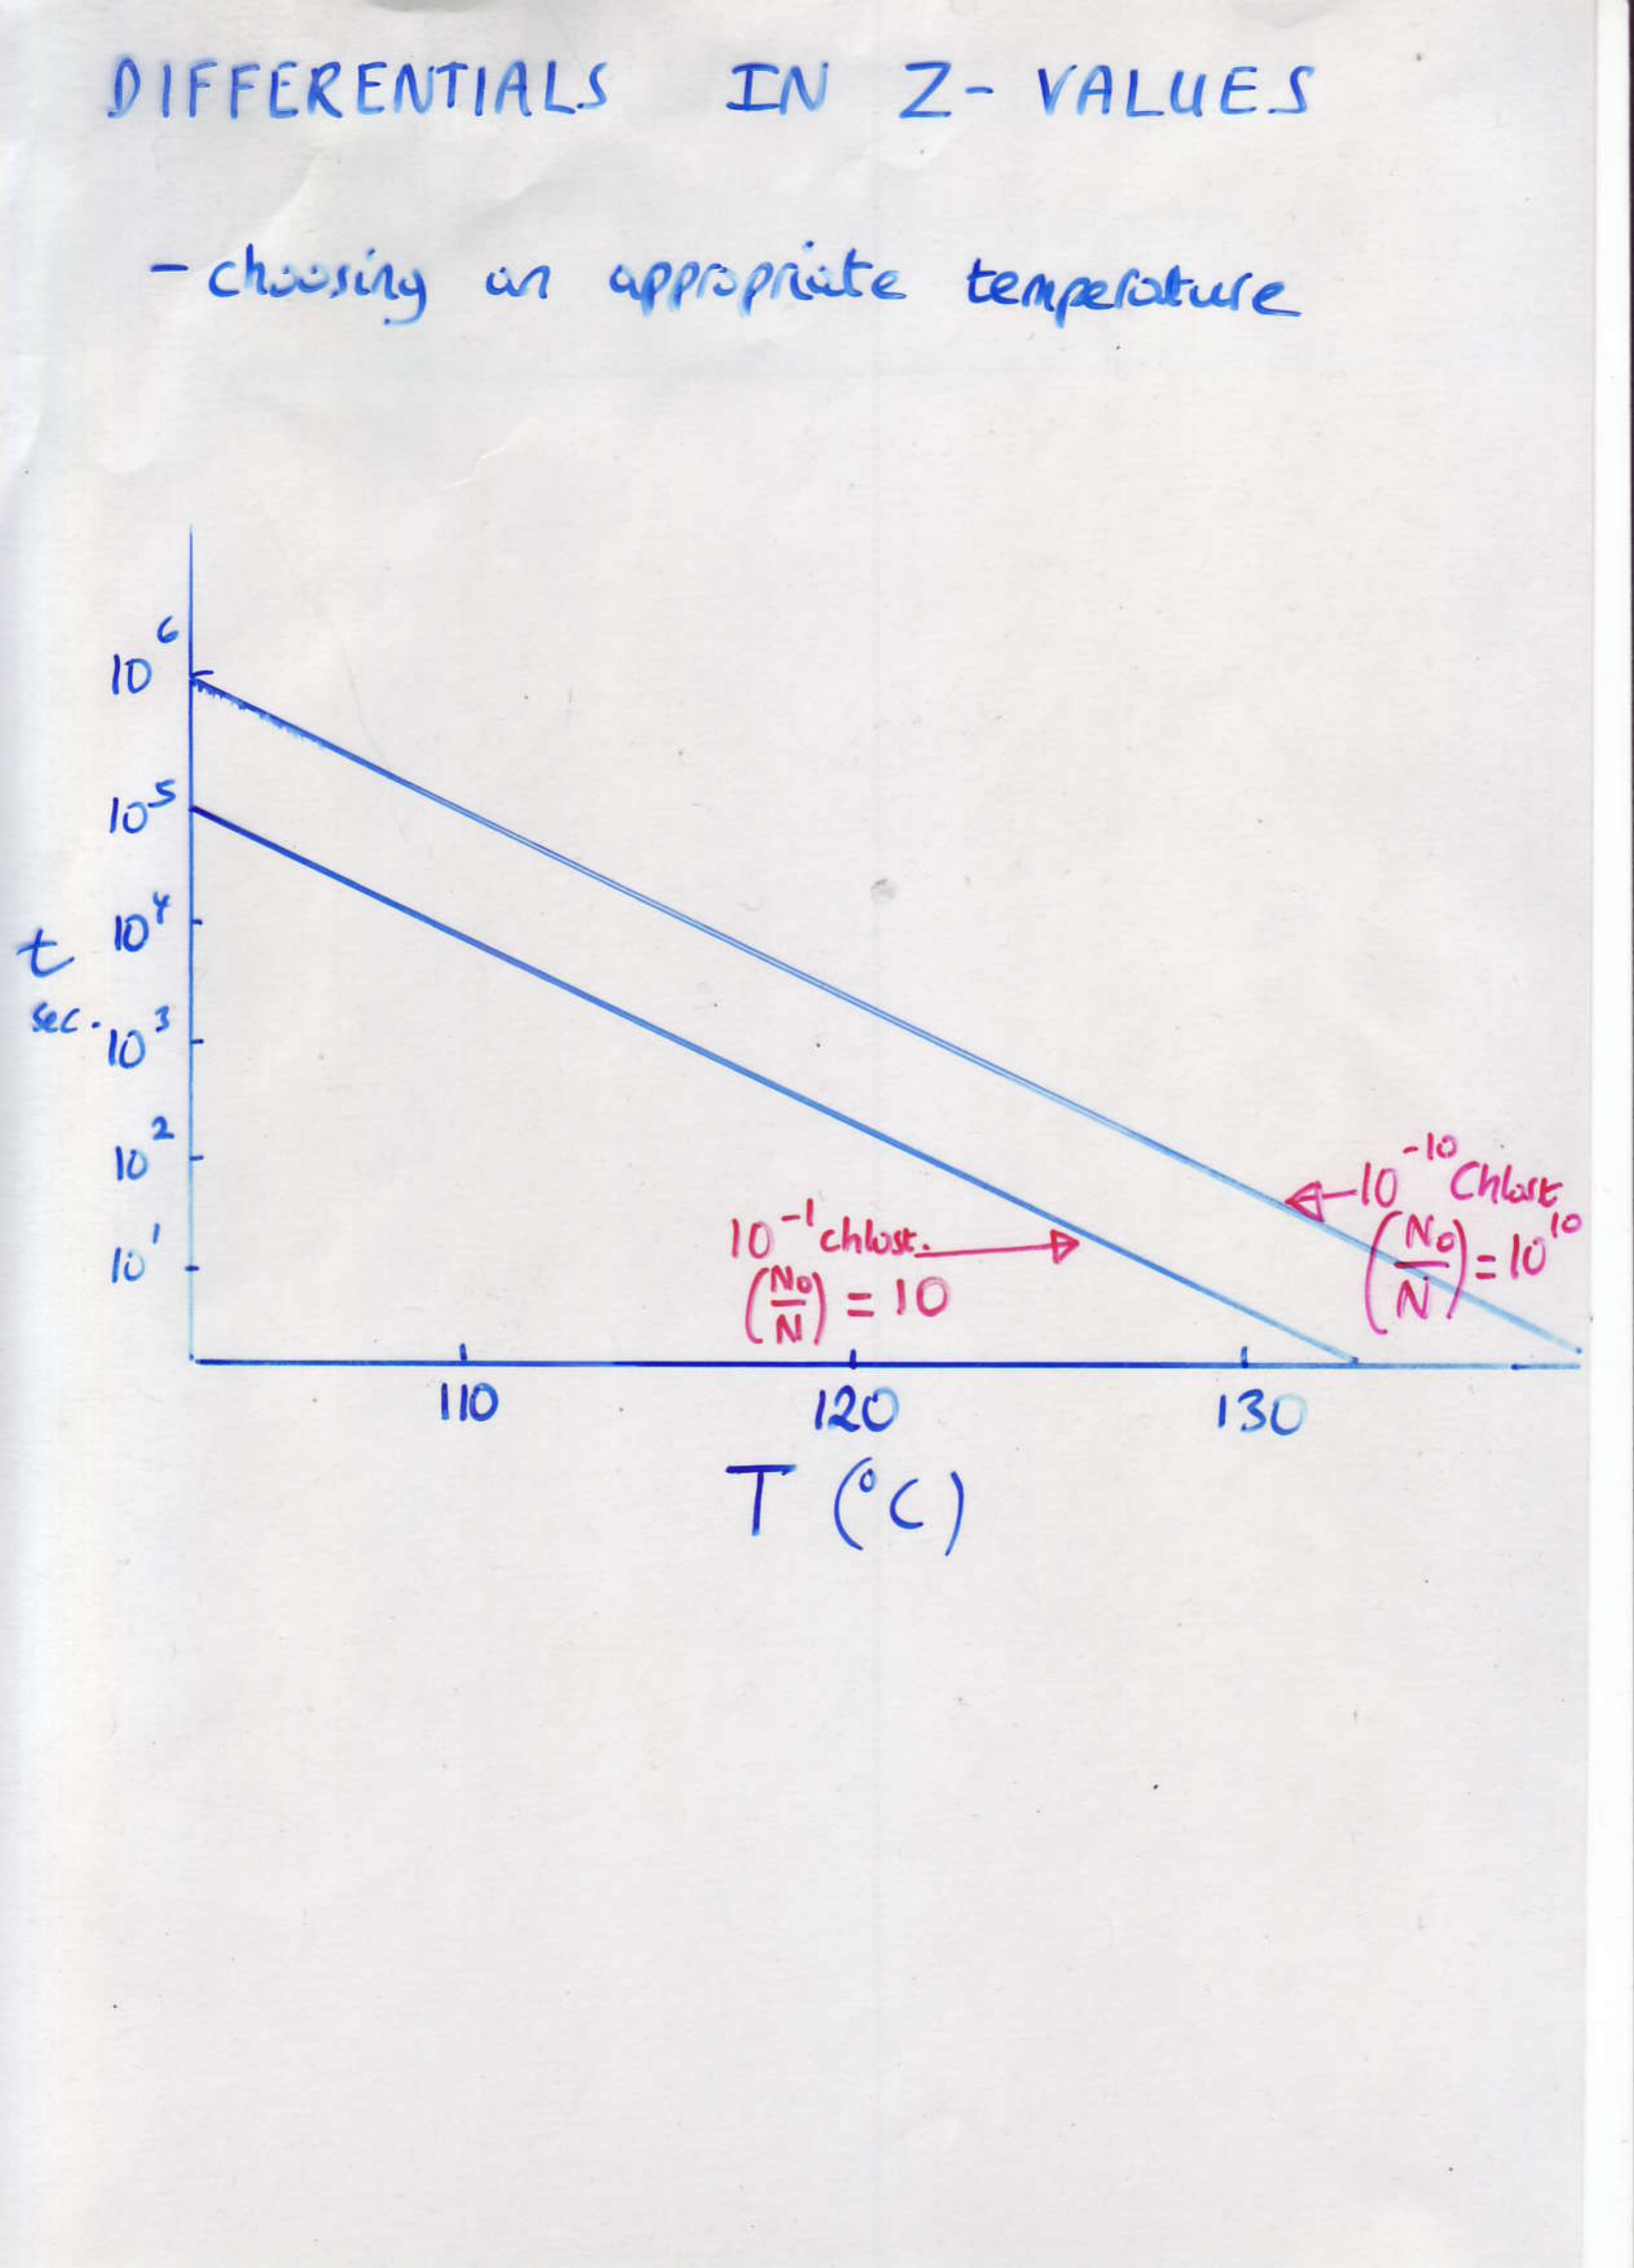 DIFFERENTIALS IN Z-VALUES
- choosing an appropriate temperature
10^6
10^5
10^4
t
sec.
10^3
10^2
10^1
10^-1 chlost.
(No/N) = 10
10^-10 Chlost
(No/N) = 10^10
110 120 130
T (°C)